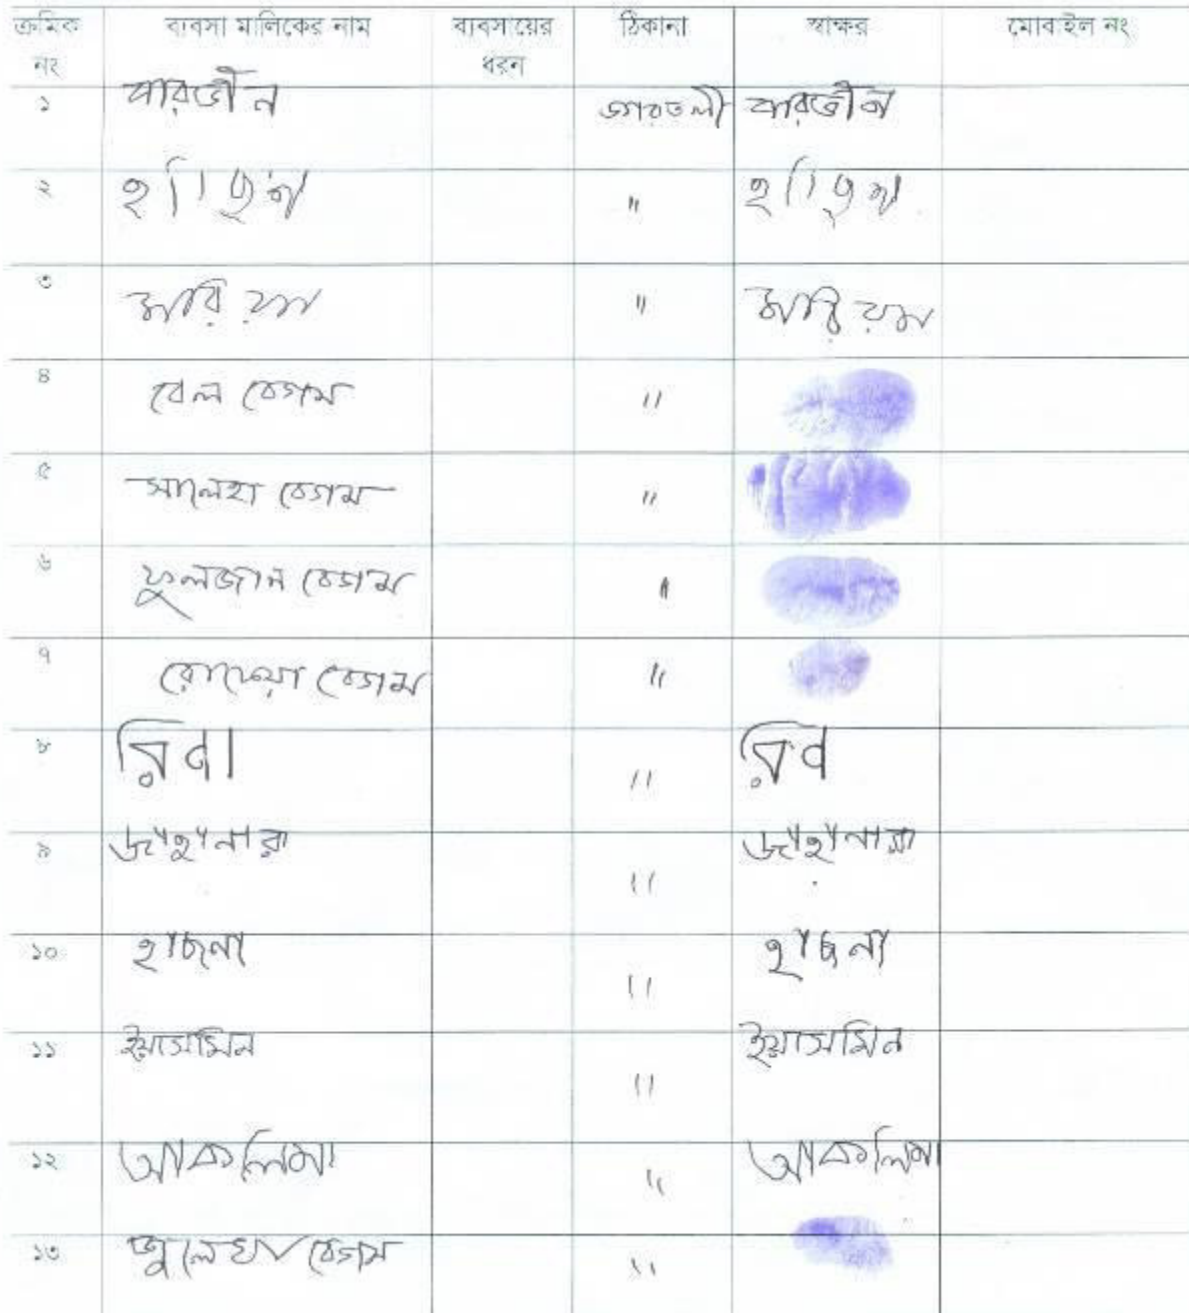 ক্রমিক নং ব্যবসা মালিকের নাম ব্যবসায়ের ধরন ঠিকানা স্বাক্ষর মোবাইল নং
১ পারভীন পারভীন
২ "
৩ মারিয়ম " মারিয়ম
৪ বেল বেগম "
৫ সালেহা বেগম "
৬ ফুলজান বেগম "
৭ বেগম "
৮ রিনা " রিন
৯ জাহানারা " জাহানারা
১০ হাছনা " হাছনা
১১ ইয়াসমিন " ইয়াসমিন
১২ আকলিমা " আকলিমা
১৩ জুলেখা বেগম "